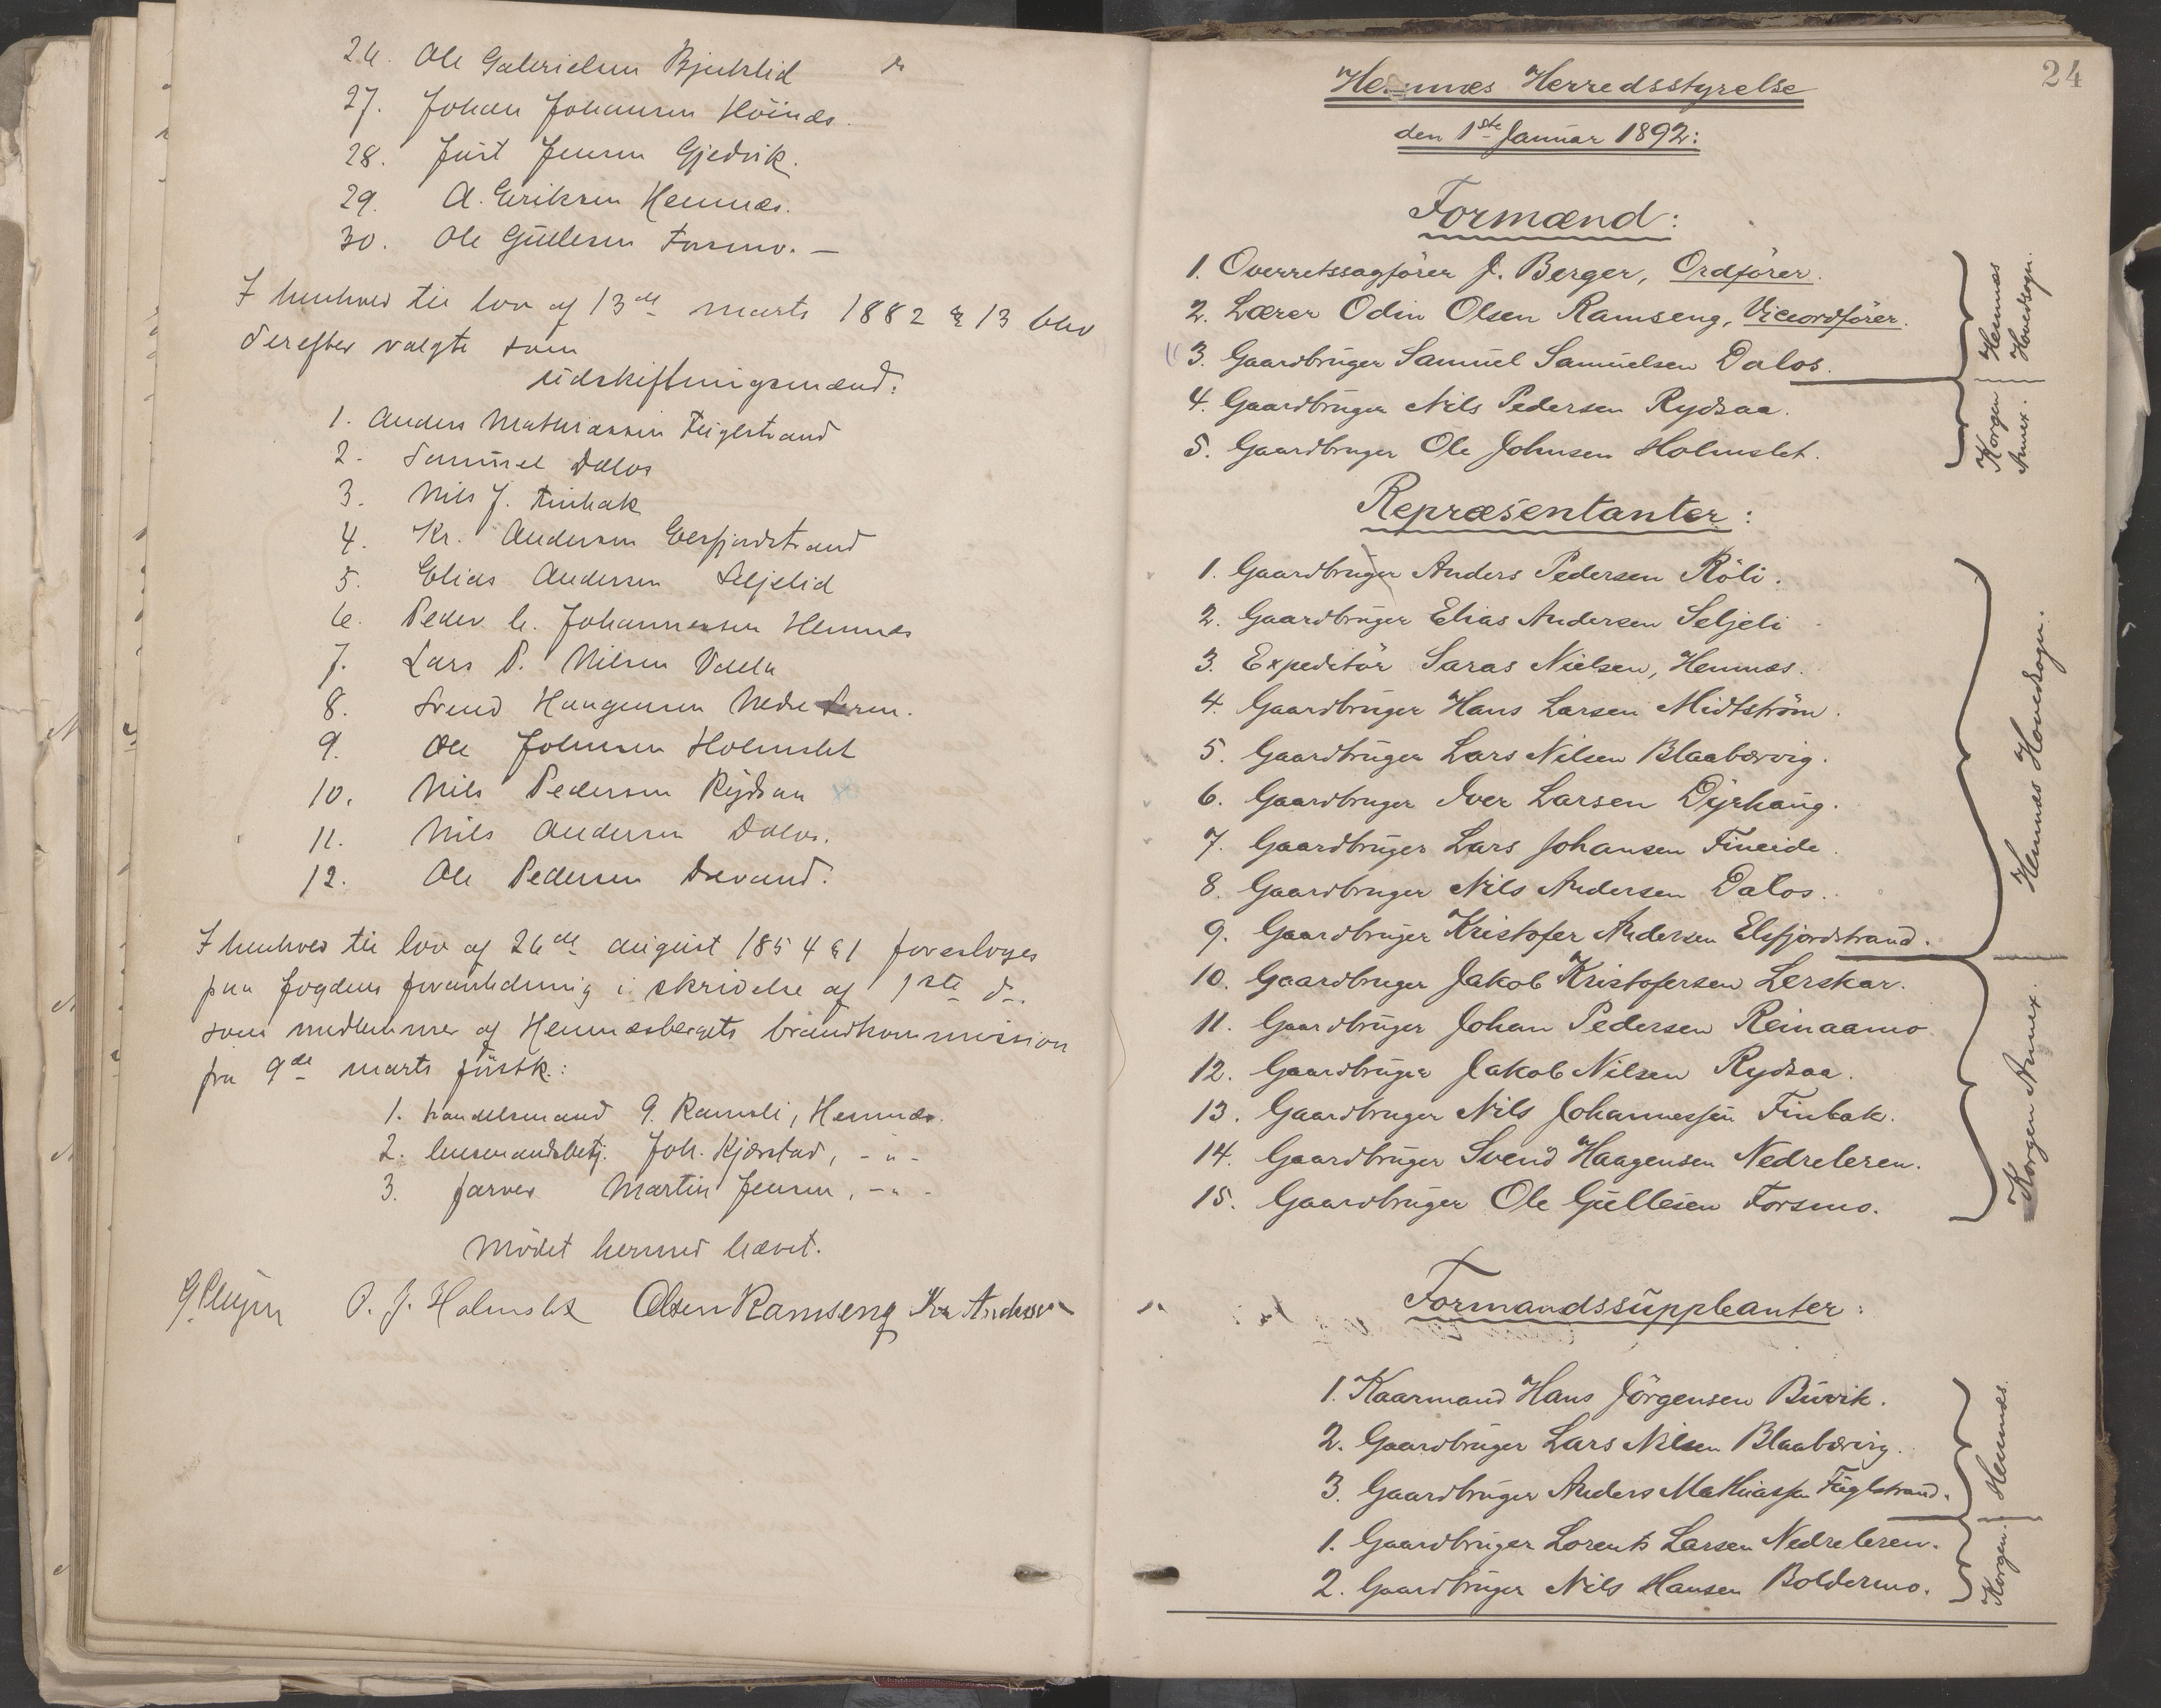 26. Ole Gabrielsen Bjerklid
27. Johan Johansen Höinæs.
28. Just Jensen Gjedvik.
29. A. Eriksen Hemnæs.
30. Ole Gullesen Forsmo. —
I henhold til lov af 13de marts 1882 § 13 blev
derefter valgte som
udskiftningsmænd:
1. Anders Mathiassen Fuglstrand
2. Samuel Dalos
3. Nils J. Finbak
4. Kr. Andersen Elsfjordstrand
5. Elias Andersen Seljelid
6. Peder C. Johannesen Hemnæs
7. Lars P. Nilsen Valla
8. Svend Haagensen Nedreleren.
9. Ole Johnsen Holmslet
10. Nils Pedersen Rydsaa
11. Nils Andersen Dalos.
12. Ole Pedersen Drevand.
I henhold til lov af 26de august 1854 § 1 foresloges
paa fogdens foranledning i skrivelse af 1ste ds.
som medlemmer af Hemnæsbergets brandkommission
fra 9de marts förstk.:
1. handelsmand G. Ramsli, Hemnæs.
2. lensmandsbetj. Joh. Kjærstad, - " -
3. farver Martin Jensen, - " -
Mödet hermed hævet.
O. J. Holmslet Olsen Ramseng Kr Andersen
24
Hemnæs Herredsstyrelse
den 1ste Januar 1892:
Formænd:
1. Overretssagförer J. Berger, Ordförer.
2. Lærer Odin Olsen Ramseng, Viceordförer.
3. Gaardbruger Samuel Samuelsen Dalos.
Hemnæs Hovedsogn.
4. Gaardbruger Nils Pedersen Rydsaa.
5. Gaardbruger Ole Johnsen Holmslet.
Korgen Annex.
Repræsentanter:
1. Gaardbruger Anders Pedersen Röli.
2. Gaardbruger Elias Andersen Seljeli
3. Expeditör Saras Nielsen, Hemnæs.
4. Gaardbruger Hans Larsen Midtström.
5. Gaardbruger Lars Nilsen Blaabærvig.
6. Gaardbruger Iver Larsen Dyrhaug.
7. Gaardbruger Lars Johansen Fineide.
8. Gaardbruger Nils Andersen Dalos.
9. Gaardbruger Kristofer Andersen Elsfjordstrand.
Hemnæs Hovedsogn.
10. Gaardbruger Jakob Kristofersen Lerskar.
11. Gaardbruger Johan Pedersen Reinaamo
12. Gaardbruger Jakob Nilsen Rydsaa.
13. Gaardbruger Nils Johannessen Finbak.
14. Gaardbruger Svend Haagensen Nedreleren.
15. Gaardbruger Ole Gullesen Forsmo.
Korgen Annex.
Formandssuppleanter:
1. Kaarmand Hans Jörgensen Buvik.
2. Gaardbruger Lars Nilsen Blaabærvig.
3. Gaardbruger Anders Mathiassen Fuglstrand.
Hemnæs.
1. Gaardbruger Lorents Larsen Nedreleren.
2. Gaardbruger Nils Hansen Boldermo.
Korgen.